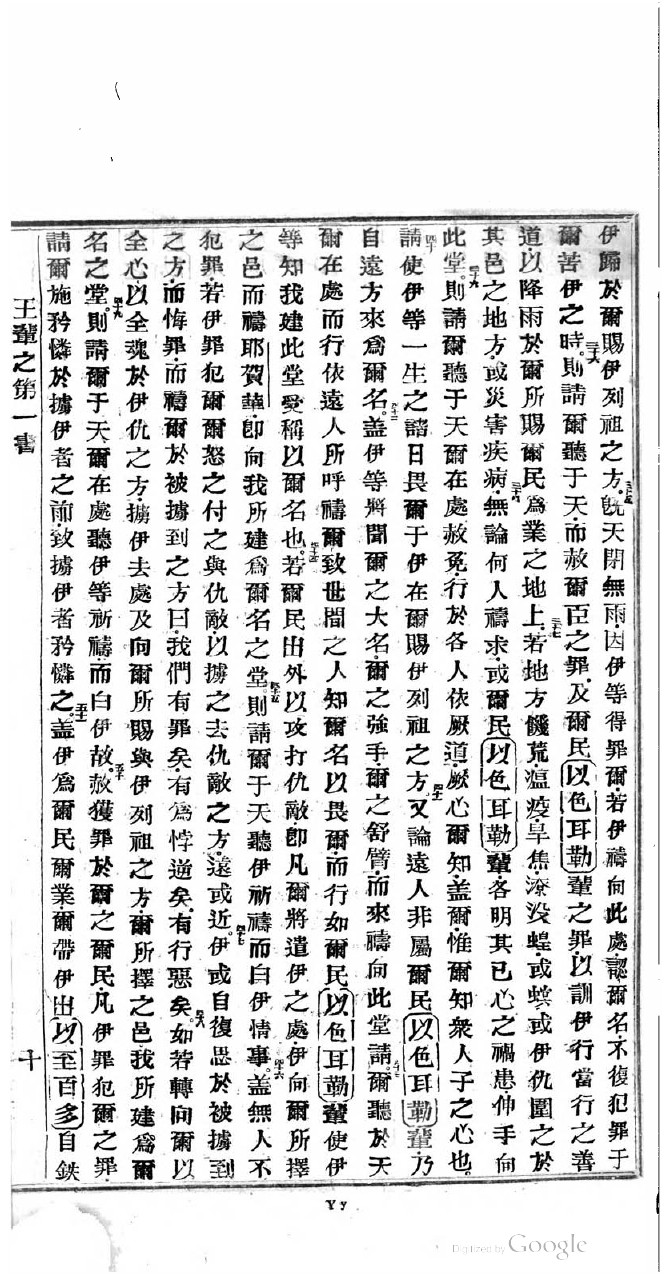 伊歸於爾賜伊列祖之方。三十五旣天閉無雨・因伊等得罪爾・若伊禱向此處認爾名・不復犯罪于
爾苦伊之時。三十六則請爾聽于天・而赦爾臣之罪・及爾民以色耳勒輩之罪・以訓伊行當行之善
道・以降雨於爾所賜爾民爲業之地上。三十七若地方饑荒・瘟疫・旱焦・滾沒・蝗・或螟・或伊仇圍之於
其邑之地方・或災害疾病・三十八無論何人禱求・或爾民以色耳勒輩各明其已心之禍患・伸手向
此堂。三十九則請爾聽于天爾在處・赦免・行於各人依厥道・厥心爾知・盖爾・惟爾知衆人子之心也。
四十請使伊等一生之諸日畏爾于伊在爾賜伊列祖之方。四十一又論遠人非屬爾民以色耳勒輩乃
自遠方來爲爾名。四十二盖伊等將聞爾之大名・爾之強手・爾之舒臂・而來禱向此堂。四十三請爾聽於天
爾在處・而行依遠人所呼禱爾・致世間之人知爾名以畏爾・而行如爾民以色耳勒輩・使伊
等知我建此堂受稱以爾名也。四十四若爾民出外以攻打仇敵・卽凡爾將遣伊之處・伊向爾所擇
之邑而禱耶賀華・卽向我所建爲爾名之堂。四十五則請爾于天聽伊祈禱・而白伊情事。四十六盖無人不
犯罪・若伊罪犯爾・爾怒之付之與仇敵・以擄之去仇敵之方・遠或近。四十七伊或自復思於被擄到
之方・而悔罪・而禱爾於被擄到之方曰・我們有罪矣・有爲悖逆矣・有行惡矣。四十八如若轉向爾以
全心以全魂於伊仇之方・擄伊去處・及向爾所賜與伊列祖之方・爾所擇之邑・我所建爲爾
名之堂。四十九則請爾于天爾在處聽伊等祈禱・而白伊故。五十赦獲罪於爾之爾民・凡伊罪犯爾之罪・
請爾施矜憐於擄伊者之前・致擄伊者矜憐之。五十一盖伊爲爾民爾業・爾帶伊出以至百多自鉄
王輩之第一書 十
Yy
Digitized by Google